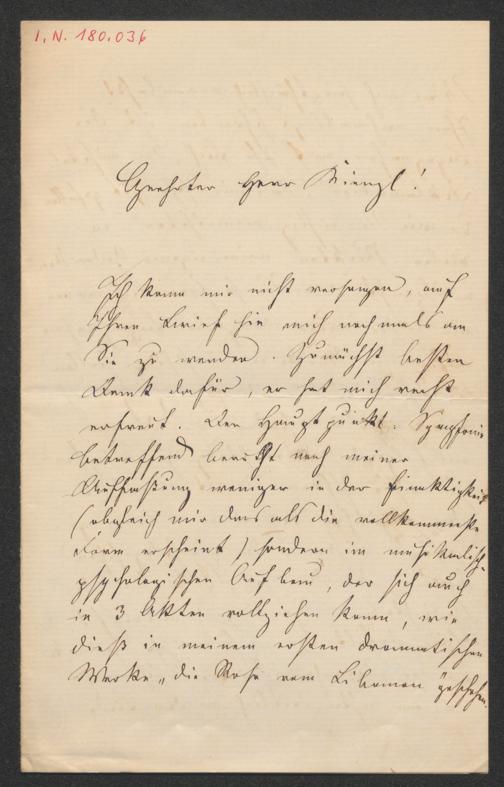 I.N. 180.036
Geehrter Herr Kienzl!
Ich kann mir nicht versagen, auf
Ihren Brief hin mich nochmals an
Sie zu wenden. Zunächst besten
Dank dafür, er hat mich recht
erfreut. Den Hauptpunkt: Symfonie
betreffend beruht nach meiner
Auffaßung weniger in der Einaktigkeit
(obgleich mir das als die vollkommenste
Form erscheint) sondern im musikalisch
psychologischen Aufbau, der sich auch
in 3 Akten vollziehen kann, wie
dieß in meinem ersten dramatischen
Werke „die Rose vom Libanon" geschehen.